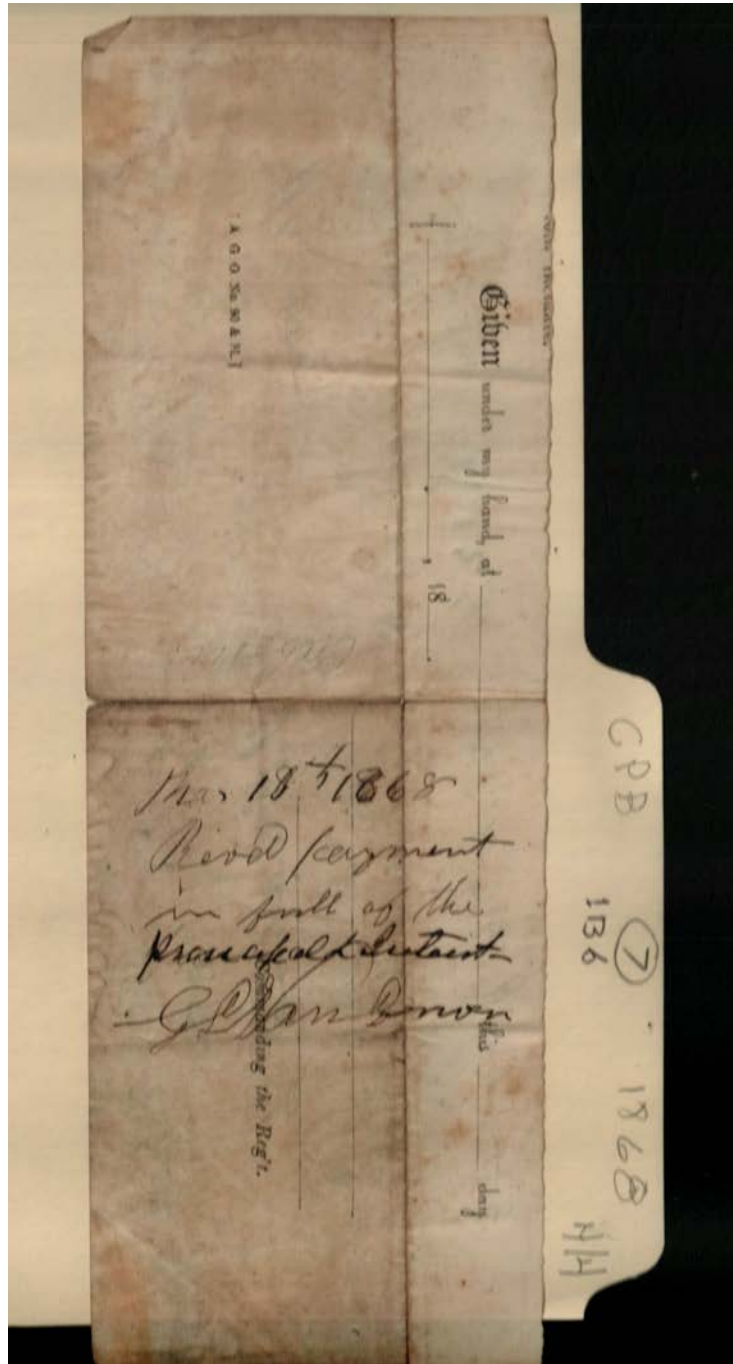 Given under my hand, at this day
, 18
[A. G. O. No. 90 & 91.]
Commanding the Reg't.
Mar 18th 1868
Recd payment
in full of the
principal & Interest
CPB 7 1868
1B6